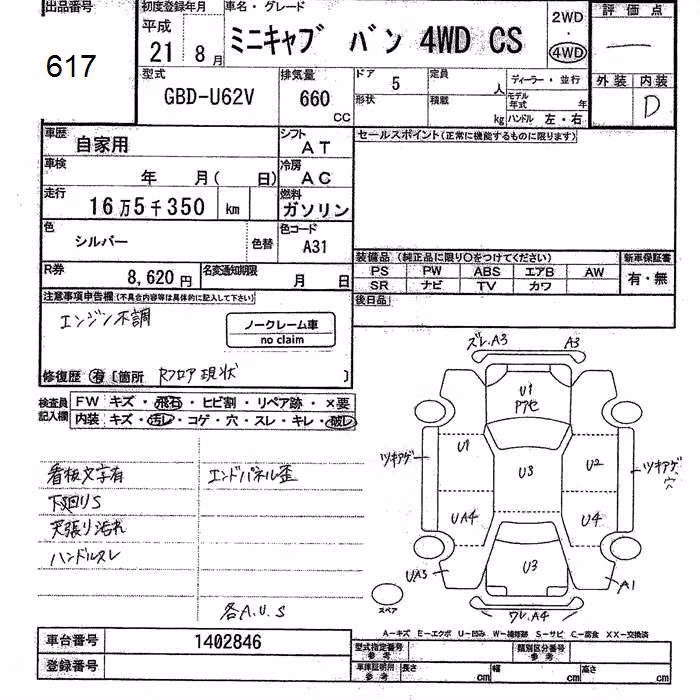 出品番号 初度登録年月 車名・グレード 評価点
617
平成 21年 8月 ミニキャブ バン 4WD CS 2WD ・ 4WD
型式 排気量 ドア 5 定員 人 ディーラー・並行 外装 内装
GBD-U62V 660 CC 形状 積載 kg モデル年式 年 D
ハンドル 左・右
車歴 自家用 シフト AT セールスポイント(正常に機能するものに限ります)
車検 年 月( 日) 冷房 AC
走行 16万5千350 km 燃料 ガソリン
色 シルバー 色替 色コード A31
装備品 (純正品に限り○をつけてください) 新車保証書
R券 8,620円 名変通知期限 月 日 PS PW ABS エアB AW 有・無
SR ナビ TV カワ
注意事項申告欄(不具合内容等は具体的に記入して下さい) 後日品
エンジン不調
ノークレーム車
no claim
修復歴 有 [箇所 Rフロア現状 ]
検査員記入欄 FW キズ・飛石・ヒビ割・リペア跡・×要
内装 キズ・汚レ・コゲ・穴・スレ・キレ・破レ
看板文字有 エンドパネル歪
下廻りS
天張り汚れ
ハンドルスレ
各A.U.S
ズレ.A3 A3
U1
P7セ
ツキアゲ U1 U3 U2 ツキアゲ、穴
UA4 U4
UA3 U3 A1
スペア ワレ.A4
A-キズ E-エクボ U-凹み W-補修跡 S-サビ C-腐食 XX-交換済
車台番号 1402846 型式指定番号 参考 類別区分番号 参考
登録番号 車庫証明用 参考 長さ cm 幅 cm 高さ cm